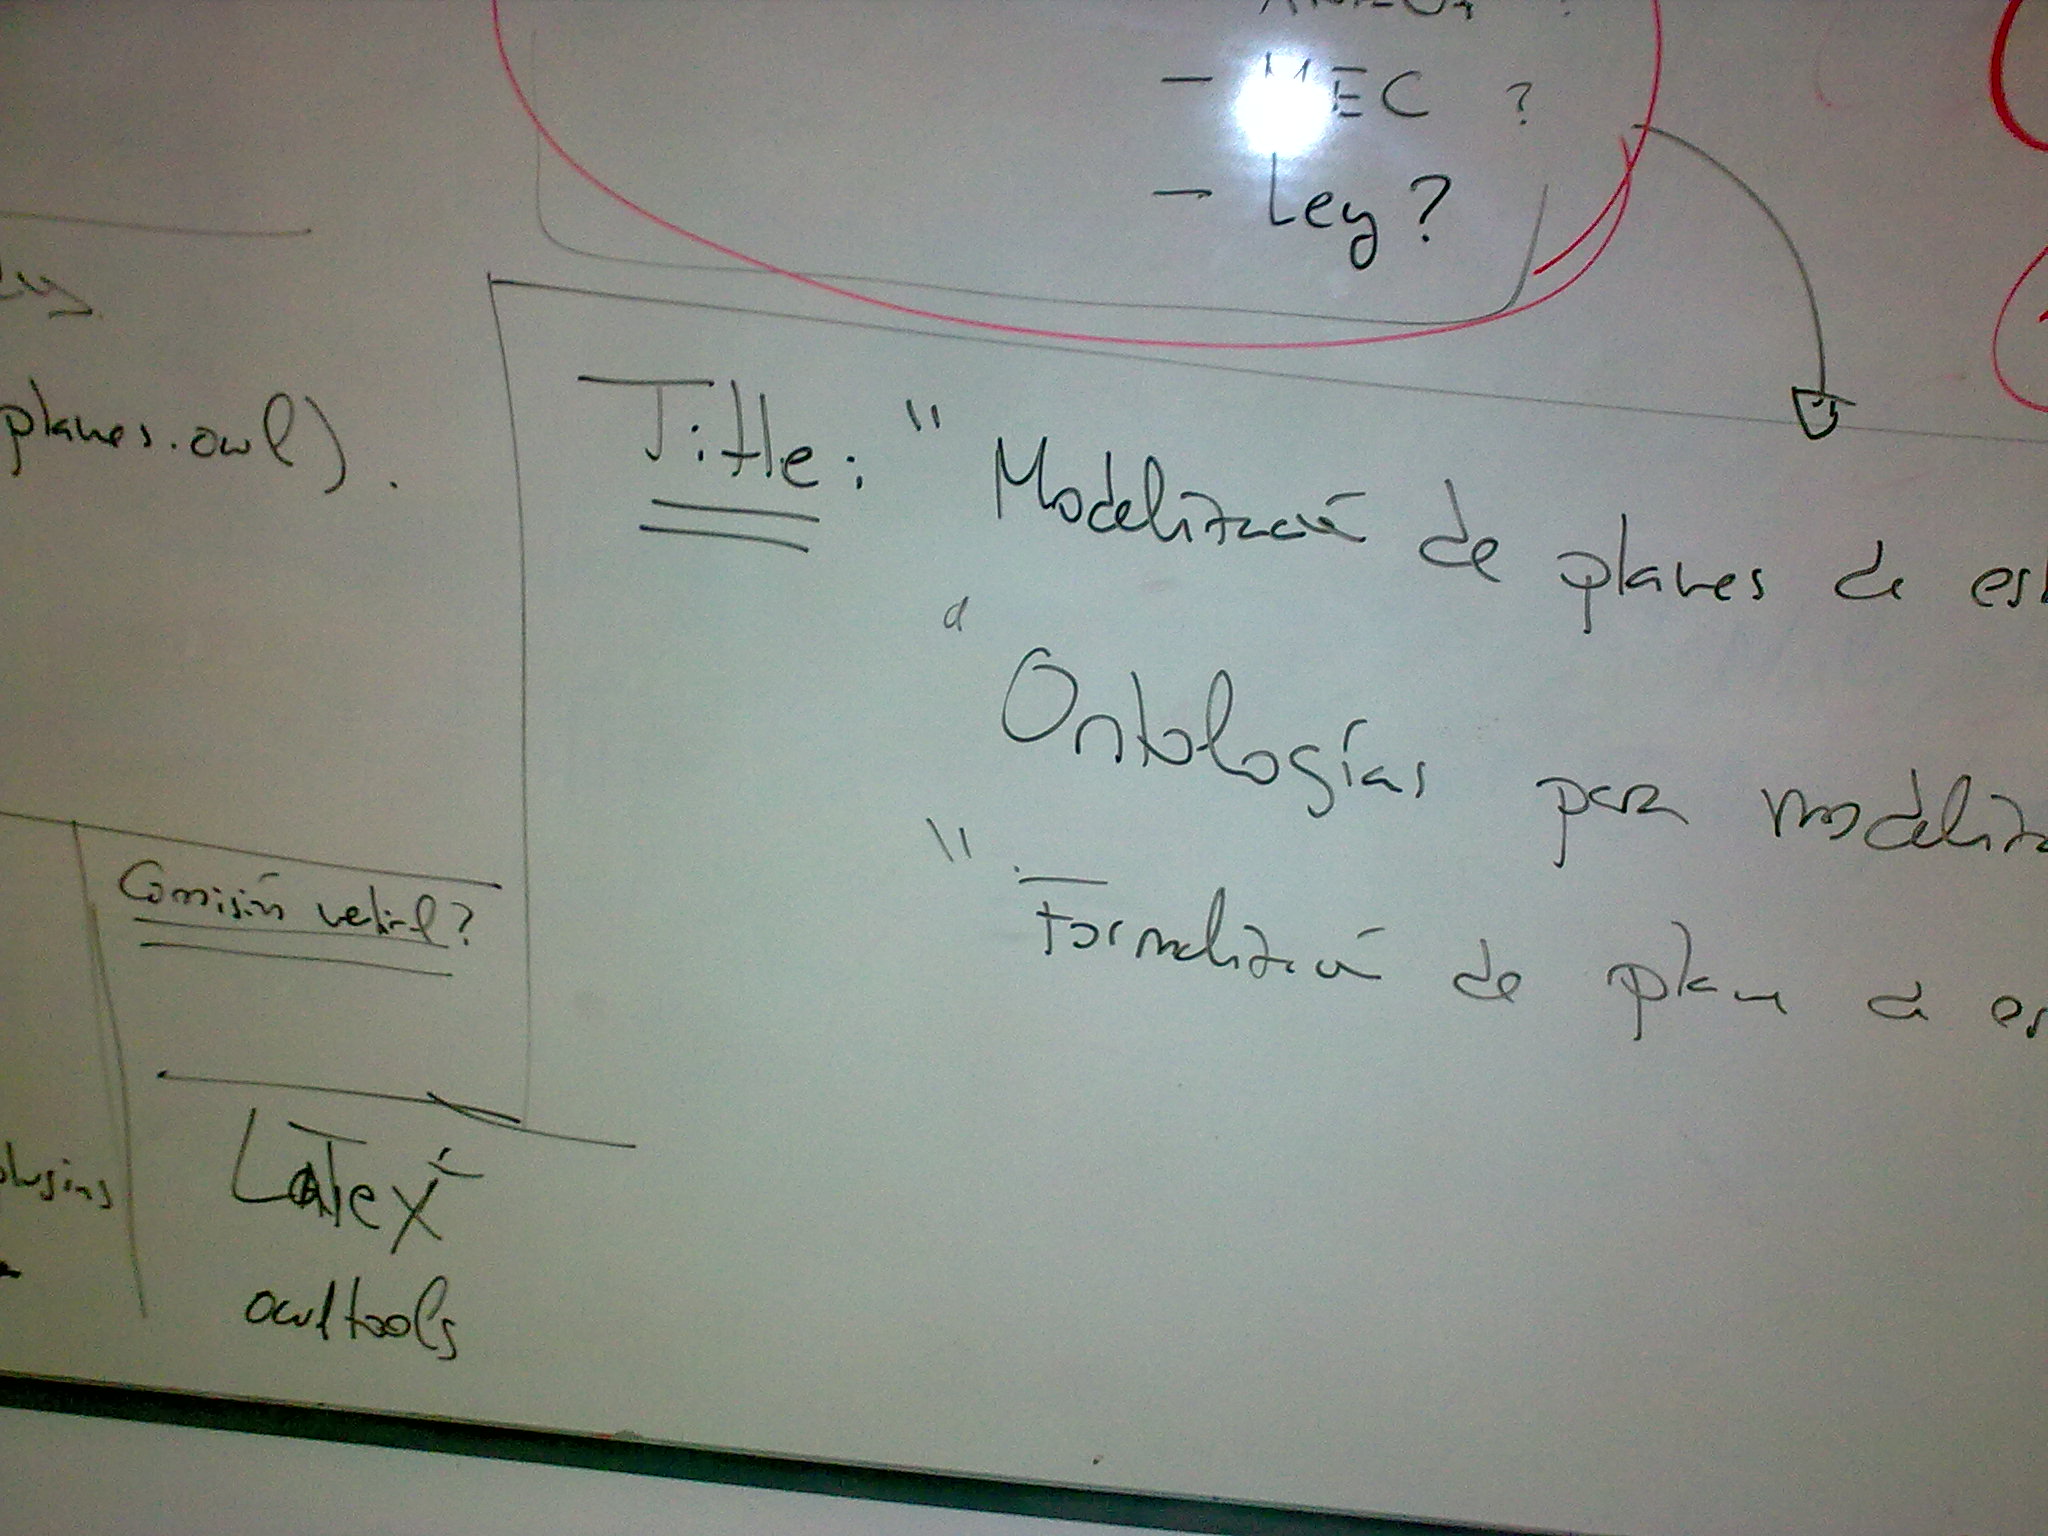 - MEC ?
- Ley?
planes.owl).
Title: "Modelización de planes de
"Ontologías para
"Formalización de planes de
Comisión ?
LaTeX
owltools